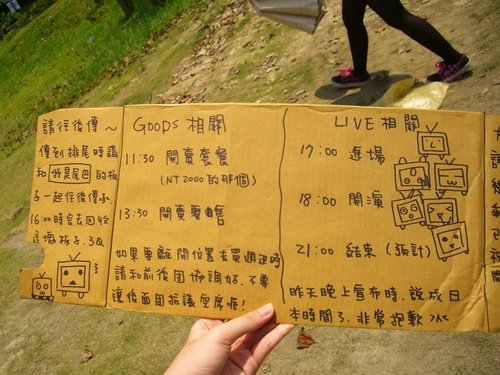 請往後傳～
傳到排尾時請
和 我是尾巴 的板
子一起往後傳承
16:00時會去回收
這塊板子. 3Q
GOODS 相關
11:30 開賣套餐
(NT2000的那個)
13:30 開賣零售
如果要離開位置去買週邊時
請和前後團協調好. 不要
讓後面團抗議空席喔!
LIVE 相關
17:00 進場
18:00 開演
21:00 結束 (預計)
昨天晚上宣布時. 說成日
本時間了. 非常抱歉